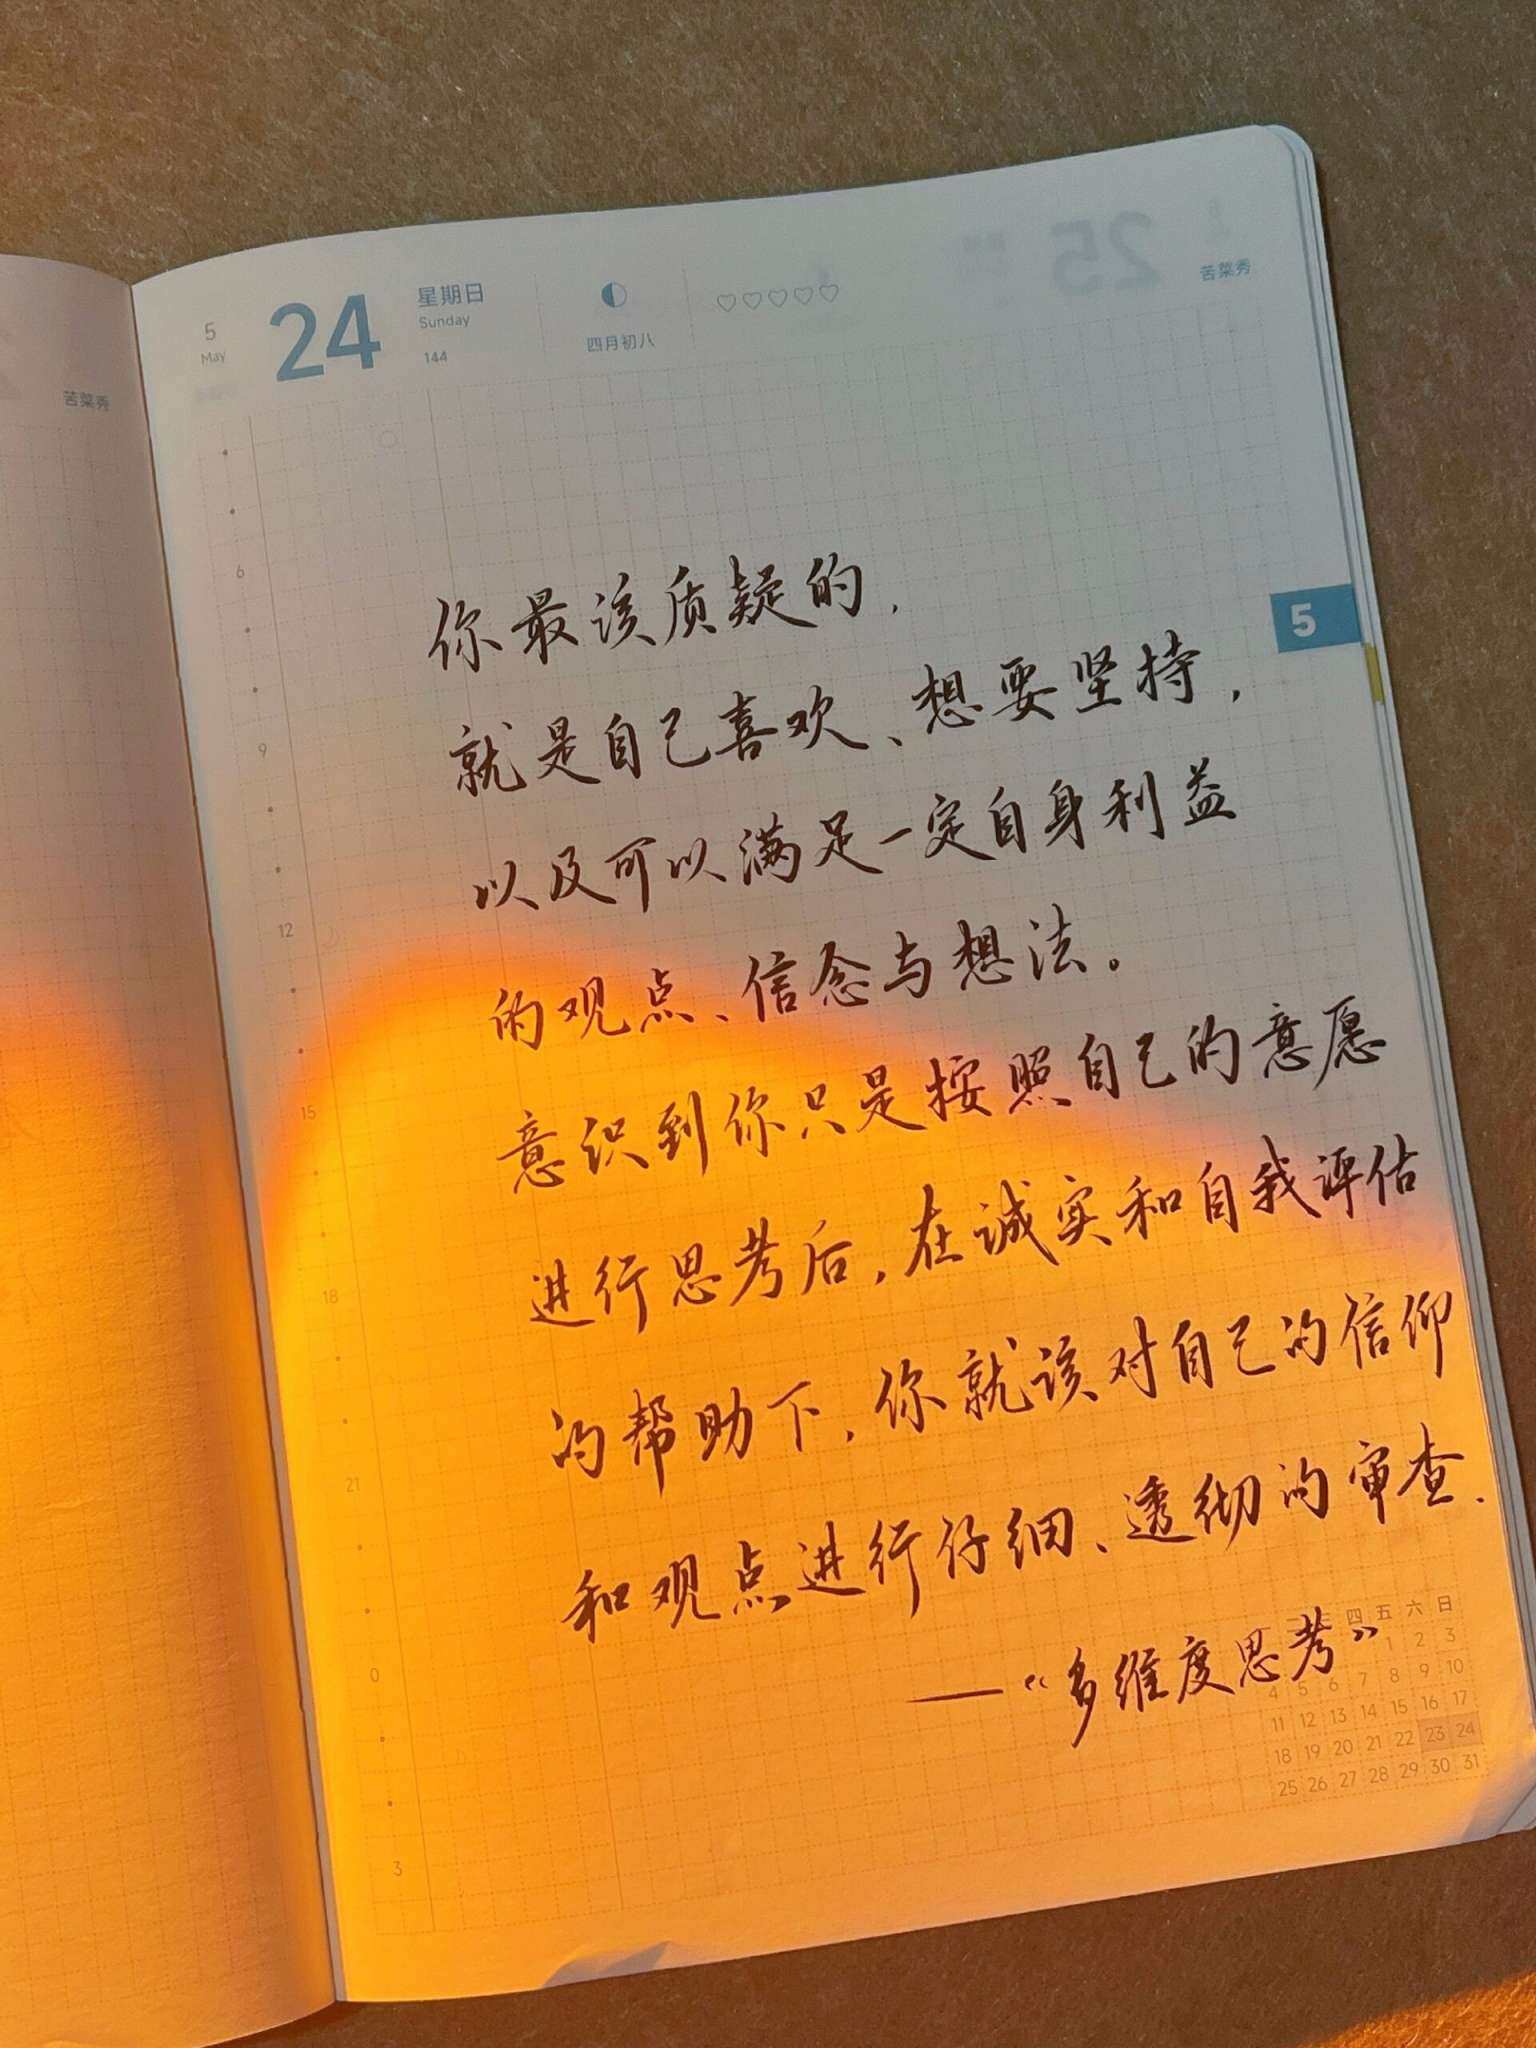 苦菜秀
5
May
24
星期日
Sunday
144
四月初八
25
苦菜秀
6
9
12
15
18
21
0
3
5
你最该质疑的,
就是自己喜欢、想要坚持,
以及可以满足一定自身利益
的观点、信念与想法。
意识到你只是按照自己的意愿
进行思考后,在诚实和自我评估
的帮助下,你就该对自己的信仰
和观点进行仔细、透彻的审查.
——“多维度思考”
四 五 六 日
1 2 3
4 5 6 7 8 9 10
11 12 13 14 15 16 17
18 19 20 21 22 23 24
25 26 27 28 29 30 31